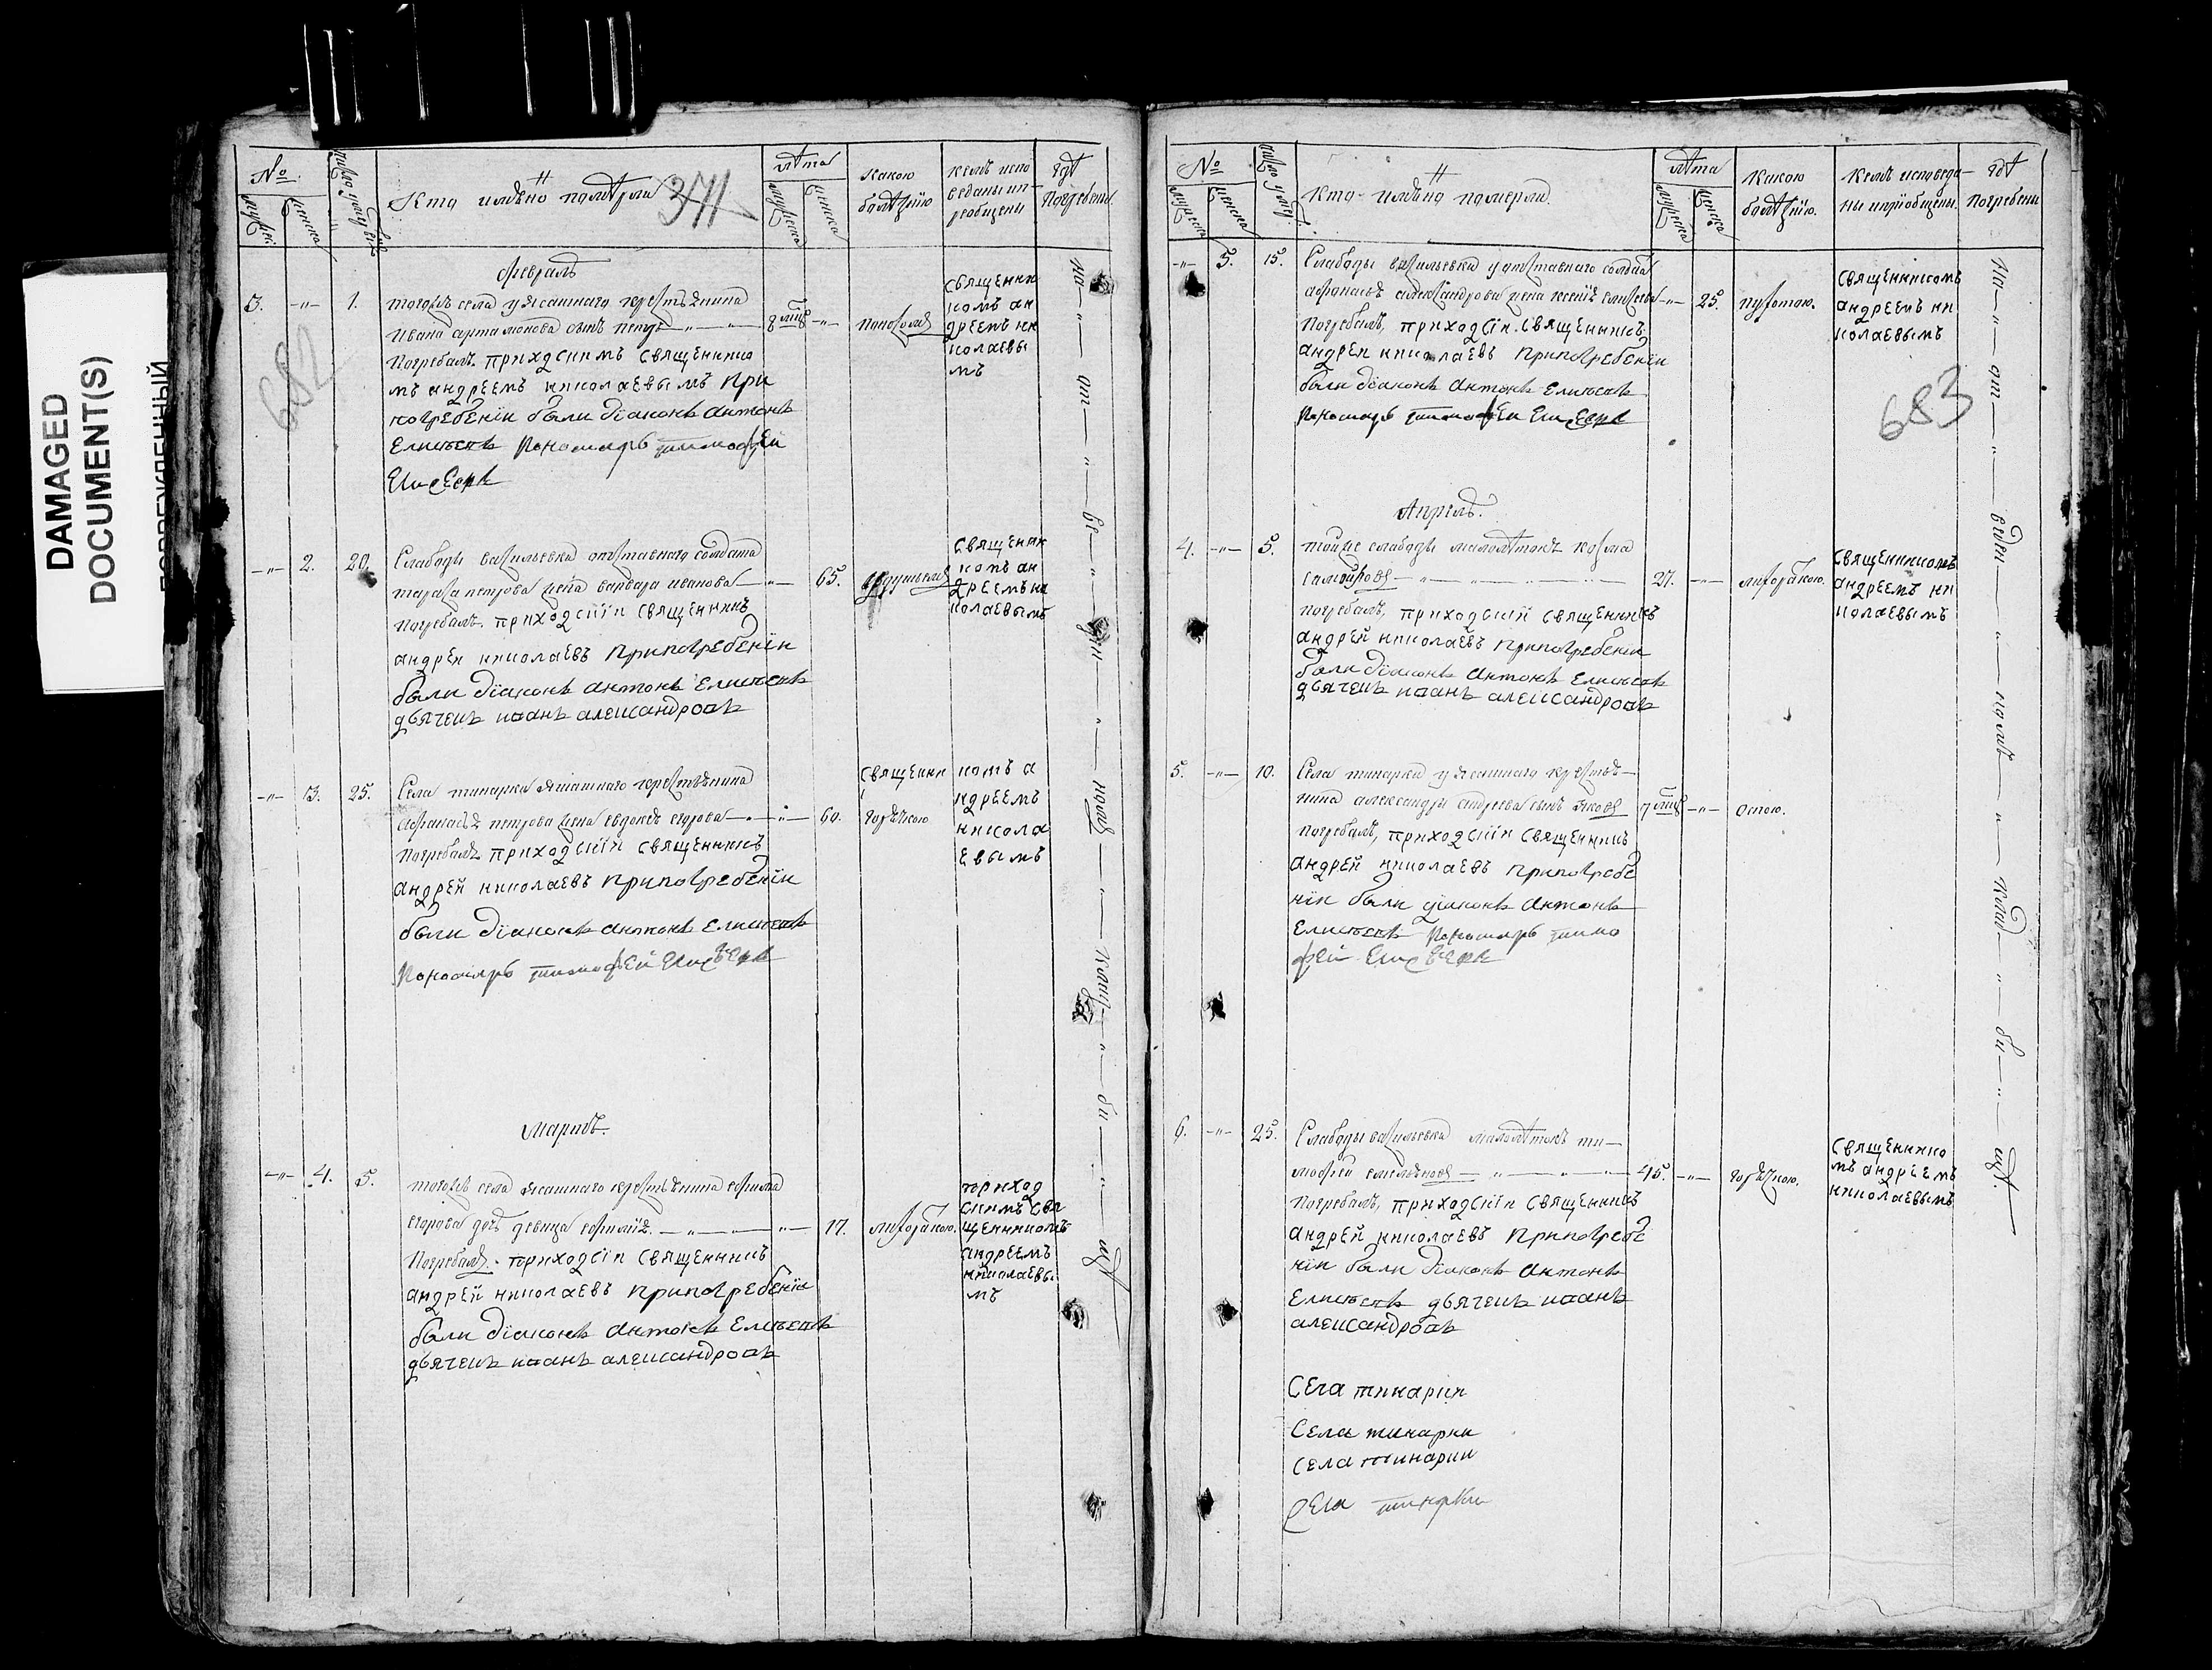 DAMAGED
DOCUMENT(S)
ПОВРЕЖДЕННЫЙ
682
№
мужеска
женска
Кто имѣно помѣрли
371
лѣта
мужеска
женска
какою
болѣзнiю
кемъ испо
веданы и п
рiобщены
гдѣ
погребены
февраль
3. -„- 1.
тогожъ села ясашнаго крестьянина
ивана артамонова сынъ петръ -„-
погребалъ приходскимъ священнико
мъ андреемъ николаевымъ при
погребенiи были дiаконъ антонъ
Елисѣевъ Пономарь тимофей
Елисеевъ
священни
комъ ан
дреемъ ни
колаевы
мъ
-„- 2. 20.
Слабоды васильевки отставнаго солдата
тараса петрова жена варвара иванова -„- 65.
погребалъ приходскiи священникъ
андреи николаевъ при погребенiи
были дiаконъ антонъ Елисѣевъ
дьячекъ иоанъ александровъ
священи
комъ ан
дреемъ ни
колаевымъ
-„- 3. 25.
Села тинарка ясашнаго крестьянина
петрова жена егорова -„- 60. горѣчкою
погребалъ приходскiи священникъ
андрей николаевъ при погребенiи
были дiаконъ антонъ Елисѣевъ
Пономарь тимофей Елисѣевъ
священни комъ а
ндреемъ
никола
евымъ
Мартъ.
-„- 4. 5.
тогожъ села ясашнаго крестьянина ефима
егорова дочь девица -„- 17. лихорадкою.
Погребалъ приходскiи священникъ
андрей николаевъ при погребенiи
были дiаконъ антонъ Елисѣевъ
дьячекъ иоанъ александровъ
приход
скимъ свя
щенникомъ
андреемъ
николаевы
мъ
№
мужеска
женска
кто имѣно померли.
лѣта
мужеска
женска
какою
болѣзнiю.
Кемъ исповеда-
ны и прiобщены.
гдѣ
погребены
-„- 5. 15.
Слабоды васильевки отставнаго солдата
александрова жена -„- 25.
погребалъ, приходскiи священникъ
андреи николаевъ при погребенiи
были дiаконъ антонъ Елисѣевъ
Пономарь тимофеи Елисеевъ
священникомъ
андреемъ ни
колаевымъ
683
Апрель.
4. -„- 5.
тойже слабоды малолѣтокъ козма
самойловъ -„- 27. -„- лихорадкою.
погребалъ, приходскiй священникъ
андрей николаевъ при погребенiи
были дiаконъ антонъ Елисѣевъ
дьячекъ иоанъ александровъ
священникомъ
андреемъ ни
колаевымъ
5. -„- 10.
Села тинарка ясашнаго крестья-
нина александры андреева сынъ яковъ -„- оспою.
погребалъ, приходскiи священникъ
андрей николаевъ при погребе
нiи были дiаконъ антонъ
Елисѣевъ Пономарь тимо
фей Елисѣевъ
6. -„- 25.
Слабоды васильевки малолѣтокъ ти-
мофеи емельяновъ -„- 45. -„- горѣчкою.
погребалъ, приходскiи священникъ
андрей николаевъ при погребе
нiи были дiаконъ антонъ
Елисѣевъ дьячекъ иоанъ
александровъ
священнико
мъ андрiемъ
николаевымъ
Села тинарки
Села тинарки
Села тинарки
Села тинарки